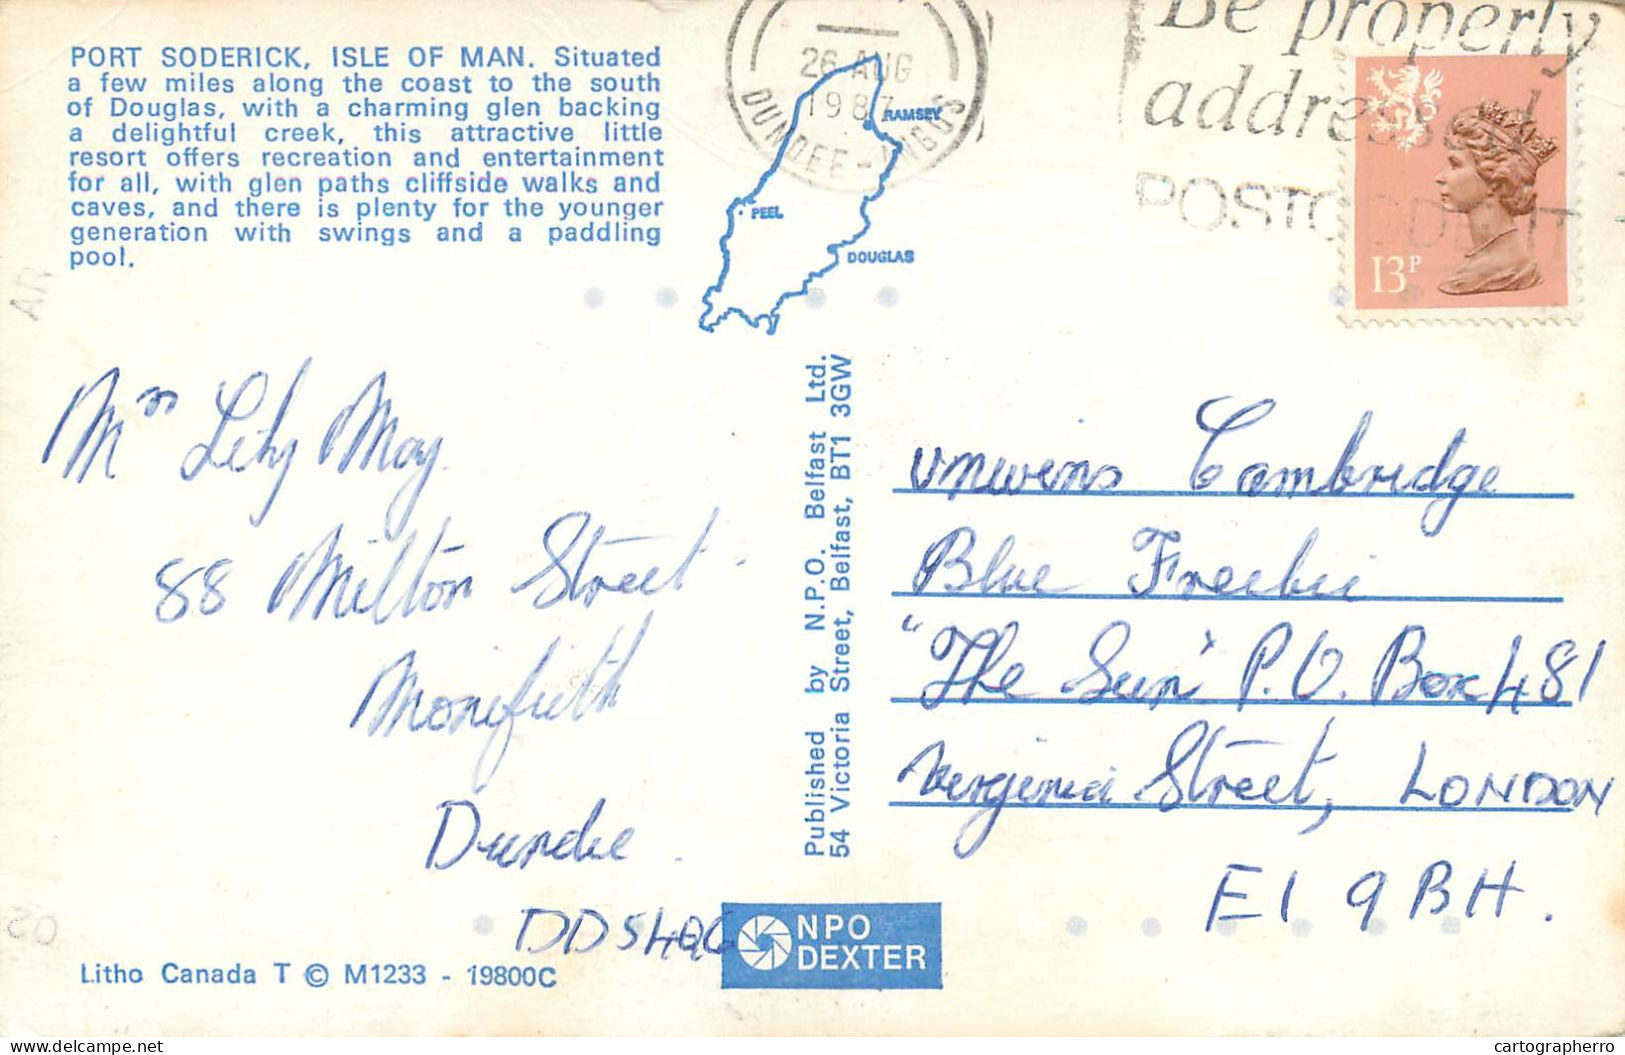 PORT SODERICK, ISLE OF MAN. Situated
a few miles along the coast to the south
of Douglas, with a charming glen backing
a delightful creek, this attractive little
resort offers recreation and entertainment
for all, with glen paths cliffside walks and
caves, and there is plenty for the younger
generation with swings and a paddling
pool.
RAMSEY
PEEL
DOUGLAS
26 AUG
1987
DUNDEE - ANGUS
Be properly
addressed
POSTCODE IT
13P
AR
Mrs Lily May
88 Milton Street
Monifieth
Dundee
DD5 4QG
Published by N.P.O. Belfast Ltd.
54 Victoria Street, Belfast, BT1 3GW
Unwins Cambridge
Blue Freebie
"The Sun" P.O. Box 481
Virginia Street, LONDON
E1 9BH.
NPO
DEXTER
Litho Canada T © M1233 - 19800C
delcampe.net
cartographerro